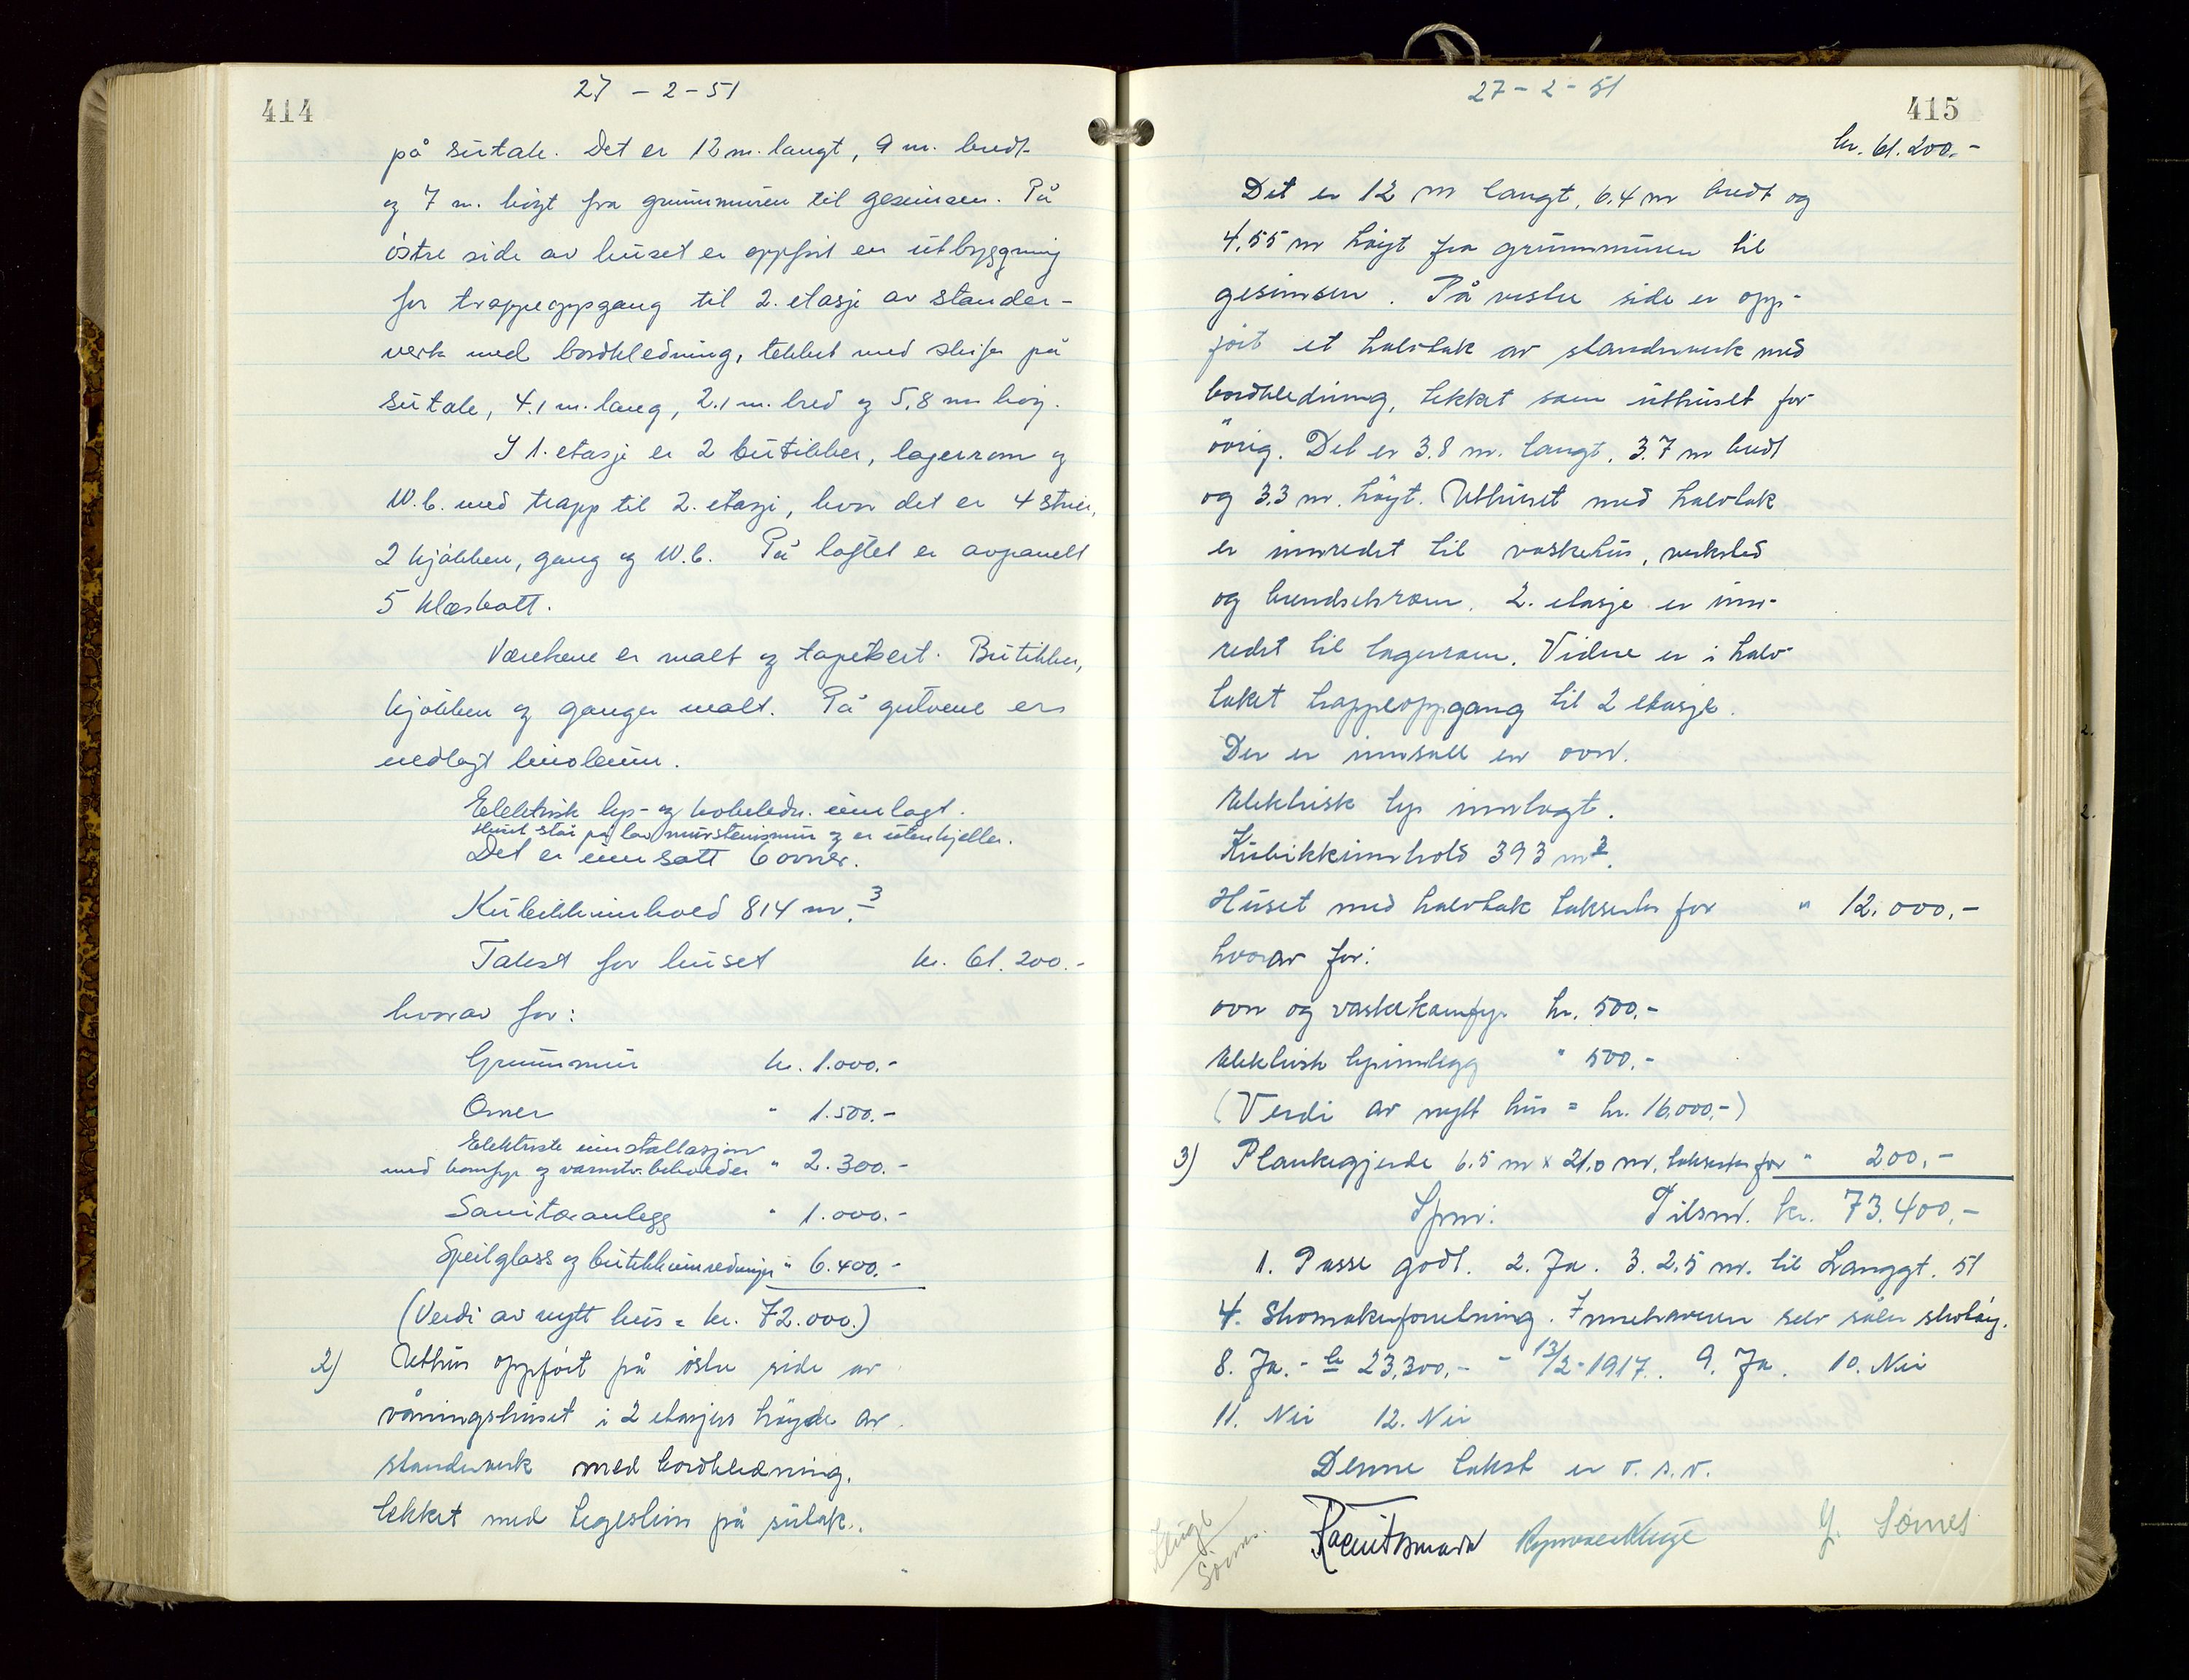 414
27 - 2 - 51
på sutak. Det er 12 m. langt, 9 m. bredt
og 7 m. høyt fra grunnmuren til gesimsen. På
østre side av huset er oppført en utbyggning
for trappeoppgang til 2. etasje av stander-
verk med bordkledning, tekket med skifer på
sutak, 4.1 m. lang, 2.1 m. bred og 5.8 m høy.
I 1. etasje er 2 butikker, lagerrom og
W.C. med trapp til 2. etasje, hvor det er 4 stuer,
2 kjøkken, gang og W.C. På loftet er avpanelt
5 klæskott.
Værelsene er malt og tapetsert. Butikker,
kjøkken og ganger malt. På gulvene er
nedlagt linoleum.
Elektrisk lys- og kokeledn. innlagt.
Huset står på lav murstensmur og er uten kjeller.
Det er innsatt 6 ovner.
Kubikkinnhold 814 m.3
Takst for huset kr. 61.200.-
hvorav for:
Grunnmur kr. 1.000.-
Ovner " 1.500.-
Elektriske installasjon
med komfyr og varmtv.beholder " 2.300.-
Sanitæranlegg " 1.000.-
Speilglass og butikkinnredninger " 6.400.-
(Verdi av nytt hus = kr. 72.000.)
2) Uthus oppført på østre side av
våningshuset i 2 etasjers høyde av
standerverk med bordkledning.
tekket med teglsten på sutak.
27 - 2 - 51
415
kr. 61.200.-
Det er 12 m langt, 6.4 m bredt og
4.55 m høyt fra grunnmuren til
gesimsen. På vestre side er opp-
ført et halvtak av standerverk med
bordkledning, tekket som uthuset for
øvrig. Det er 3.8 m. langt, 3.7 m bredt
og 3.3 m. høyt. Uthuset med halvtak
er innredet til vaskehus, verksted
og brendselsrom. 2. etasje er inn-
redet til lagerrom. Videre er i halv-
taket trappeoppgang til 2 etasje.
Der er innsatt en ovn.
Elektrisk lys innlagt.
Kubikkinnhold 393 m3.
Huset med halvtak takseres for " 12.000,-
hvorav for:
ovn og vaskekomfyr kr. 500,-
Elektrisk lysinnlegg " 500,-
(Verdi av nytt hus = kr. 16.000,-)
3) Plankegjerde 6.5 m x 21.0 m, takseres for " 200,-
Spm: Tilsm. kr. 73.400,-
1. Passe godt. 2. Ja. 3. 2,5 m. til Langgt. 51
4. Skomakerforretning. Innehaveren selv såler skotøy.
8. Ja. - kr 23.300,- - 13/2-1917. 9. Ja. 10. Nei
11. Nei 12. Nei
Denne takst er o. s. v.
Kluge
Sømes